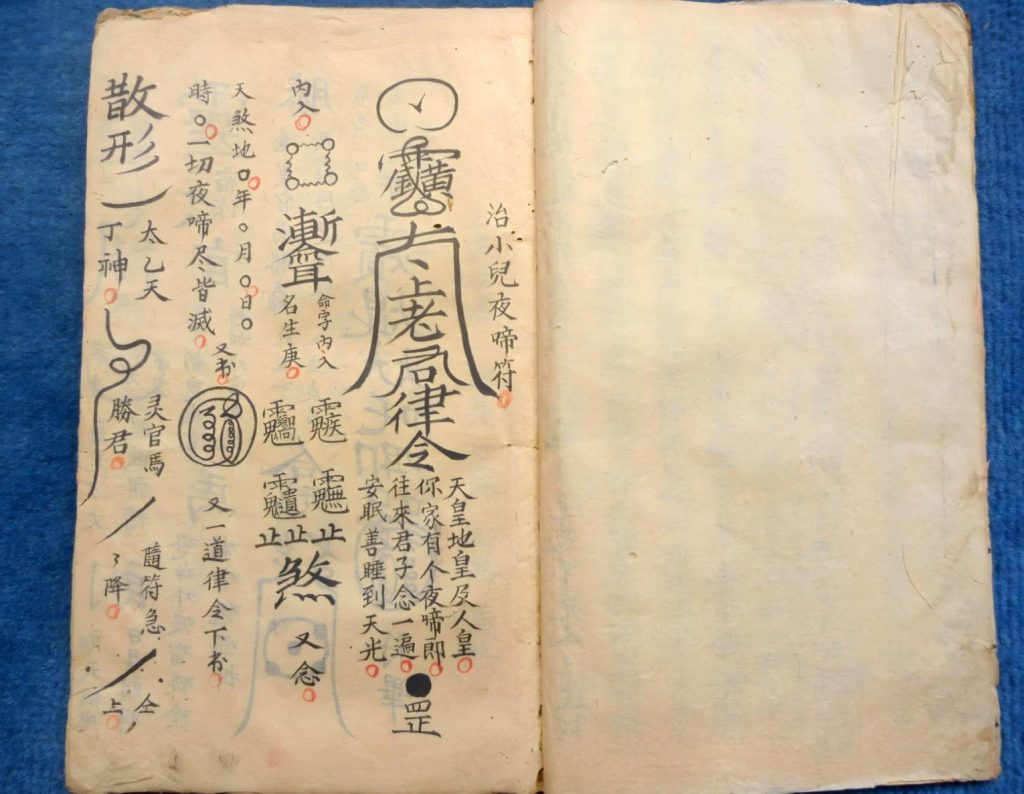 治小兒夜啼符
太上老君律令
天皇地皇及人皇
你家有个夜啼郎
往來君子念一遍
安眠善睡到天光
罡
內入
聻
命字內入
名生庚
止止止
煞
又念
天煞地 年 月 日
時 一切夜啼尽皆滅
又书
又一道律令下书
散形
太乙天
丁神
灵官馬
勝君
隨符急
降